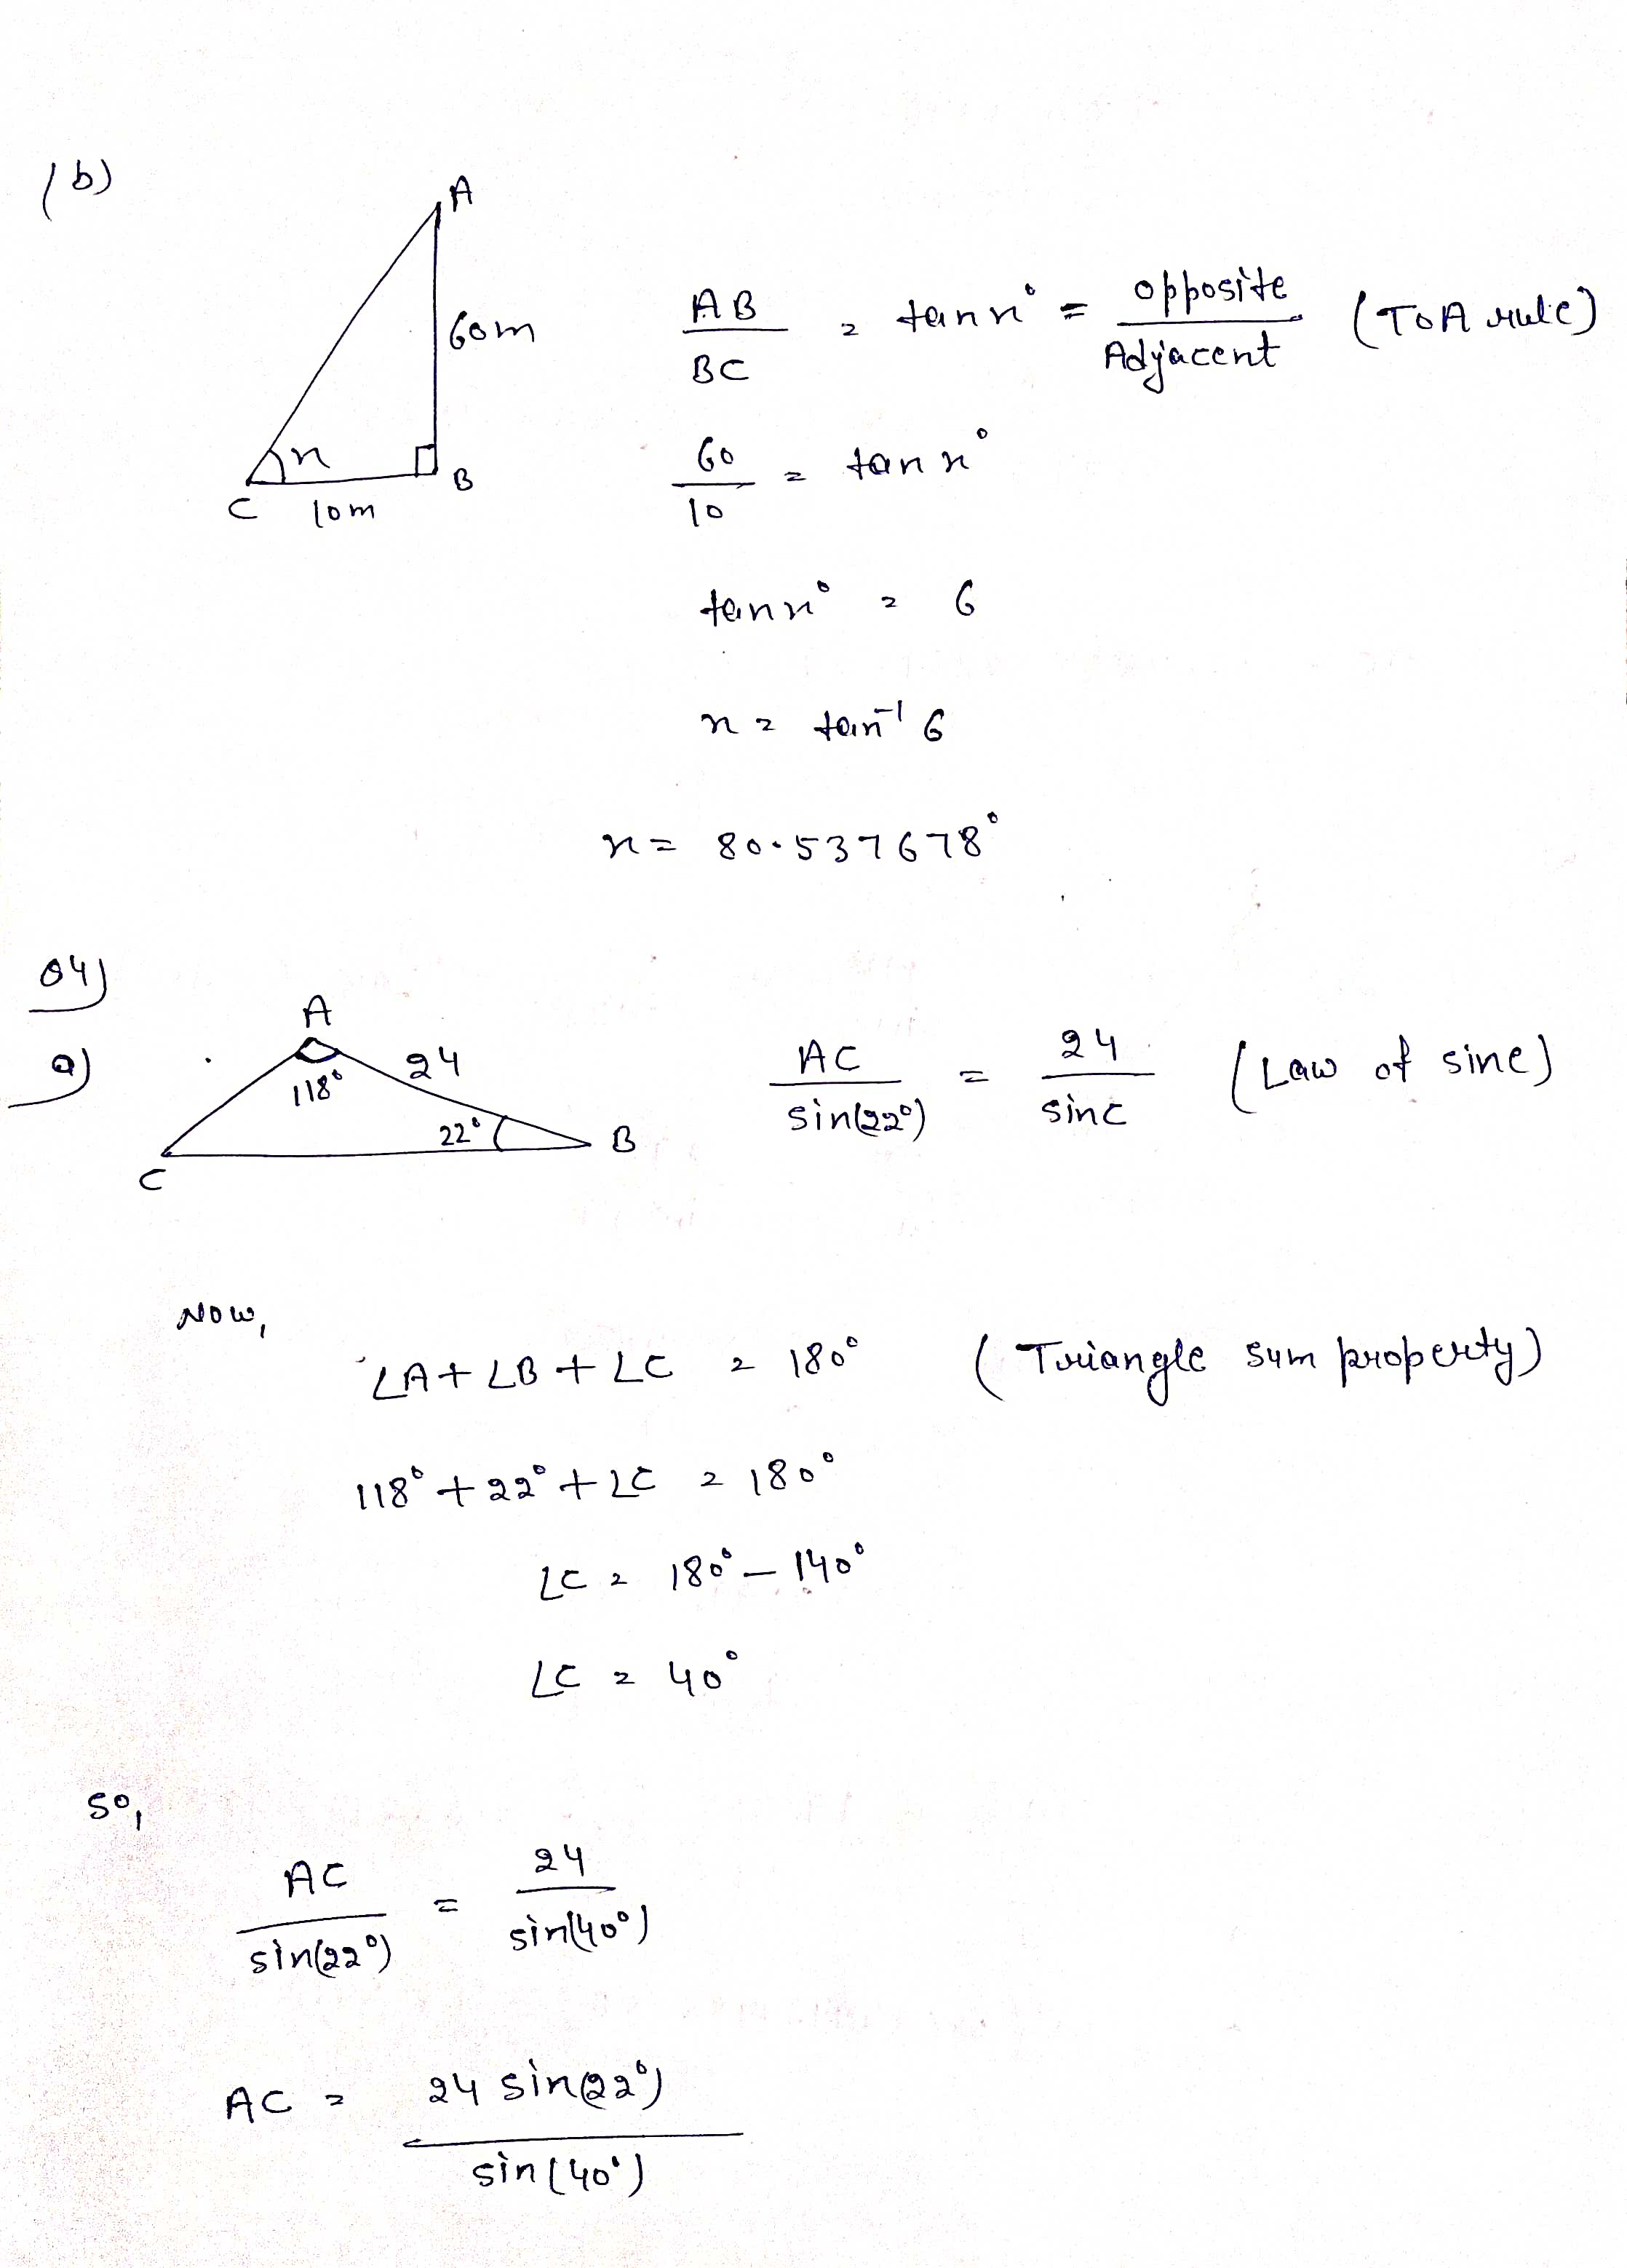 (b)
A
60m
x
B
C 10m
AB/BC = tan x° = opposite/Adjacent (TOA rule)
60/10 = tan x°
tan x° = 6
x = tan⁻¹ 6
x = 80.537678°
04)
a)
A
24
118°
22°
B
C
AC/sin(22°) = 24/sin C (Law of sine)
Now,
∠A + ∠B + ∠C = 180° (Triangle sum property)
118° + 22° + ∠C = 180°
∠C = 180° - 140°
∠C = 40°
So,
AC/sin(22°) = 24/sin(40°)
AC = 24 sin(22°)/sin(40°)